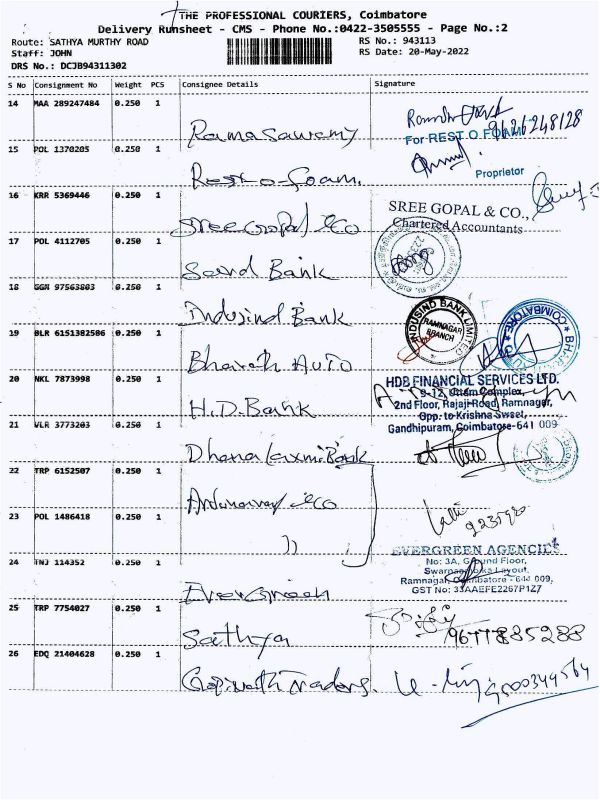 THE PROFESSIONAL COURIERS, Coimbatore
Delivery Runsheet - CMS - Phone No.:0422-3505555 - Page No.:2
Route: SATHYA MURTHY ROAD
RS No.: 943113
Staff: JOHN
RS Date: 20-May-2022
DRS No.: DCJB94311302
S No Consignment No Weight PCS Consignee Details Signature
14 MAA 289247484 0.250 1
Ramasawamy
9626248128
15 POL 1370205 0.250 1
For REST.O.FOAM
Rest-o-foam.
Proprietor
16 KRR 5369446 0.250 1
Sree Gopal &Co
SREE GOPAL & CO.,
Chartered Accountants
17 POL 4112705 0.250 1
Sound Bank
18 GGN 97563803 0.250 1
Indusind Bank
INDUSIND BANK LIMITED
RAMNAGAR
BRANCH
COIMBATORE
19 BLR 6151382586 0.250 1
Bharath AUTO
20 NKL 7873998 0.250 1
H.D.Bank
HDB FINANCIAL SERVICES LTD.
9-12, Uttam Complex,
2nd Floor, Rajaji Road, Ramnagar,
Opp. to Krishna Sweet,
Gandhipuram, Coimbatore-641 009
21 VLR 3773203 0.250 1
Dhana Laxmi Bank
22 TRP 6152507 0.250 1
&Co
23 POL 1486418 0.250 1
))
24 TNJ 114352 0.250 1
Evergreen
EVERGREEN AGENCIES
No: 3A, Ground Floor,
Layout,
Ramnagar, Coimbatore - 641 009,
GST No: 33AAEFE2267P1Z7
25 TRP 7754027 0.250 1
Sathya
9677885288
26 EDQ 21404628 0.250 1
Gopinath Traders.
9500344564